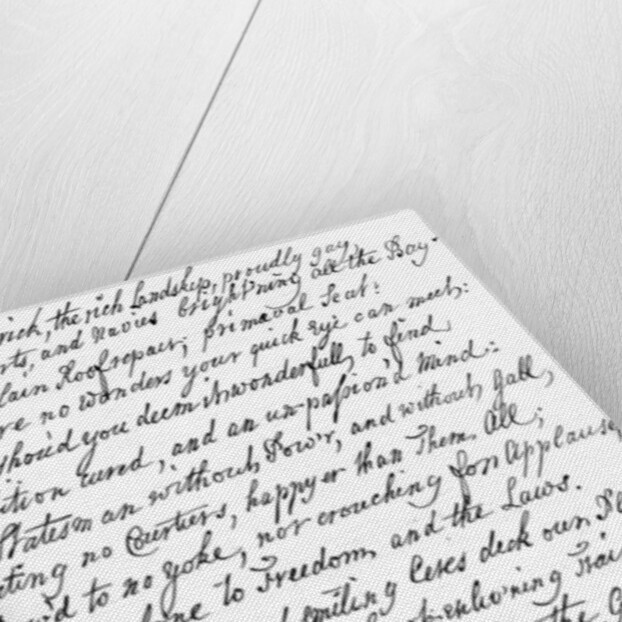 rich, the rich Landskip, proudly gay,
rts, and Navies bright'ning all the Bay.
lain Roof repair; primæval Seat:
re no wonders your quick Eye can meet:
shou'd you deem it wonderfull, to find
ition cured, and an un-passion'd Mind:
Statesman without Pow'r, and without Gall,
ting no Courtiers, happyer than Them All;
w'd to no yoke, nor crouching for Applause,
one to Freedom, and the Laws.
smiling Ceres deck our Pl
enlivening Trai
the